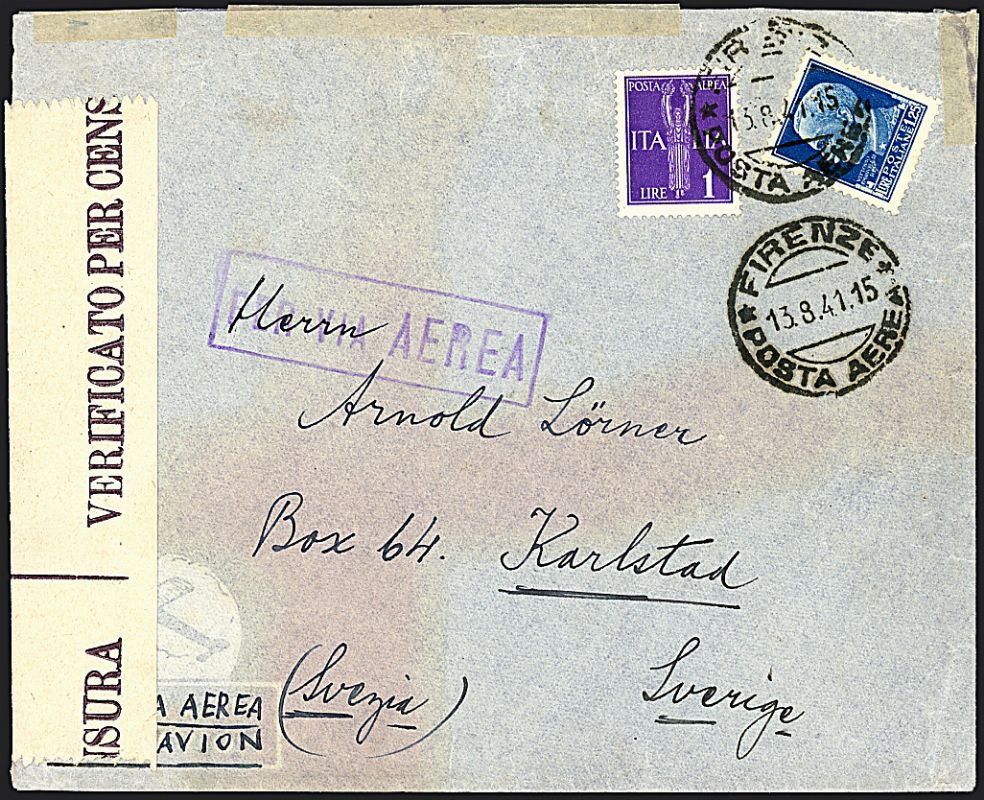 VERIFICATO PER CENS
NSURA
POSTA AEREA
ITALIA
LIRE 1
POSTE
ITALIANE
LIRE 1,25
13.8.41.15
POSTA AEREA
FIRENZE
13.8.41.15
POSTA AEREA
PER VIA AEREA
Herrn
Arnold Lörner
Box 64. Karlstad
(Svezia) Sverige
A AEREA
AVION